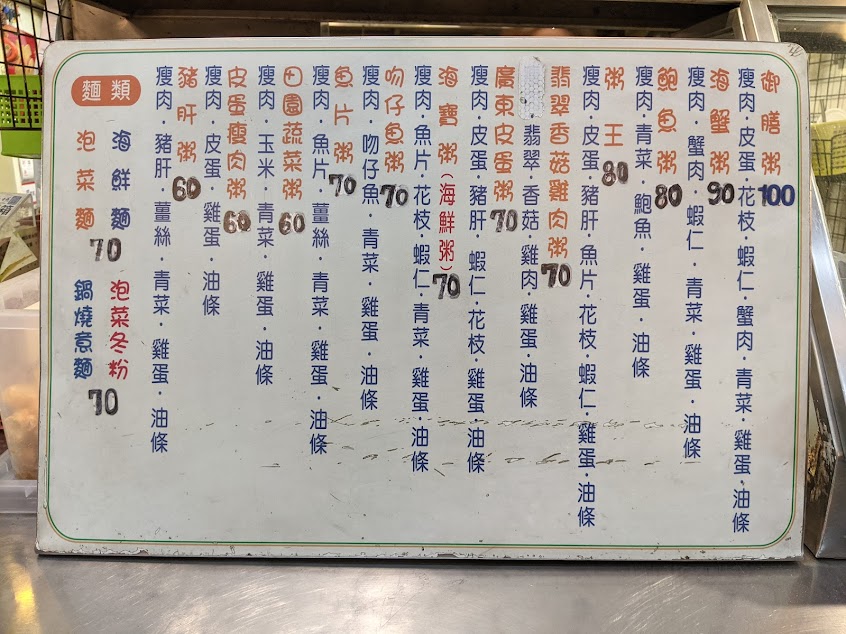 御膳粥 100
瘦肉·皮蛋·花枝·蝦仁·蟹肉·青菜·雞蛋·油條
海蟹粥 90
瘦肉·蟹肉·蝦仁·青菜·雞蛋·油條
鮑魚粥 80
瘦肉·青菜·鮑魚·雞蛋·油條
粥王 80
瘦肉·皮蛋·豬肝·魚片·花枝·蝦仁·雞蛋·油條
翡翠香菇雞肉粥 70
翡翠·香菇·雞肉·雞蛋·油條
廣東皮蛋粥 70
瘦肉·皮蛋·豬肝·蝦仁·花枝·雞蛋·油條
海寶粥(海鮮粥) 70
瘦肉·魚片·花枝·蝦仁·青菜·雞蛋·油條
吻仔魚粥 70
瘦肉·吻仔魚·青菜·雞蛋·油條
魚片粥 70
瘦肉·魚片·薑絲·青菜·雞蛋·油條
田園蔬菜粥 60
瘦肉·玉米·青菜·雞蛋·油條
皮蛋瘦肉粥 60
瘦肉·皮蛋·雞蛋·油條
豬肝粥 60
瘦肉·豬肝·薑絲·青菜·雞蛋·油條
麵類
海鮮麵
泡菜麵
70
泡菜冬粉
鍋燒意麵
70